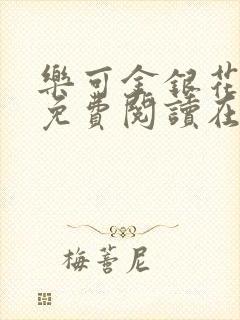 樂可金銀花
免費閱讀在
梅蔷尼